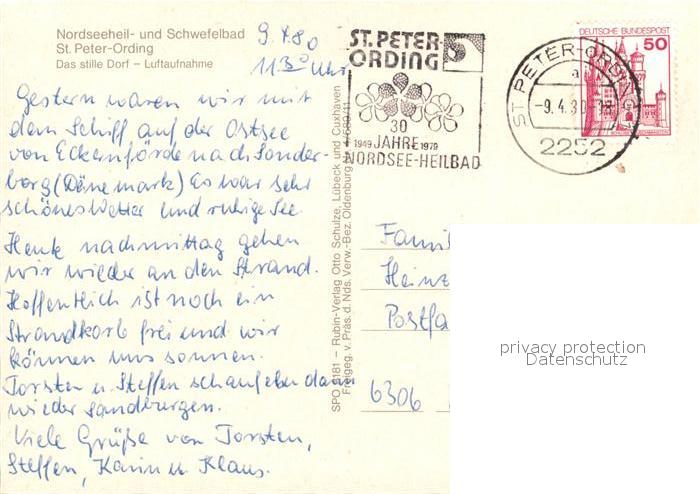 Nordseeheil- und Schwefelbad
St. Peter-Ording
Das stille Dorf – Luftaufnahme
9.4.80
11.30 Uhr
Gestern waren wir mit
dem Schiff auf der Ostsee
von Eckernförde nach Sonder-
borg (Dänemark) Es war sehr
schönes Wetter und ruhige See.
Heute nachmittag gehen
wir wieder an den Strand.
Hoffentlich ist noch ein
Strandkorb frei und wir
können uns sonnen.
Torsten u. Steffen schaufeln dann
wieder Sandburgen.
Viele Grüße von Torsten,
Steffen, Karin u Klaus.
SPO 8181 – Rubin-Verlag Otto Schulze, Lübeck und Cuxhaven
Freigeg. v. Präs. d. Nds. Verw.-Bez. Oldenburg
ST. PETER-
ORDING
30
1949 JAHRE 1979
NORDSEE-HEILBAD
ST. PETER-ORDING
a
-9.4.80
2252
DEUTSCHE BUNDESPOST
50
Famil
Heinz
Postfa
6306
privacy protection
Datenschutz